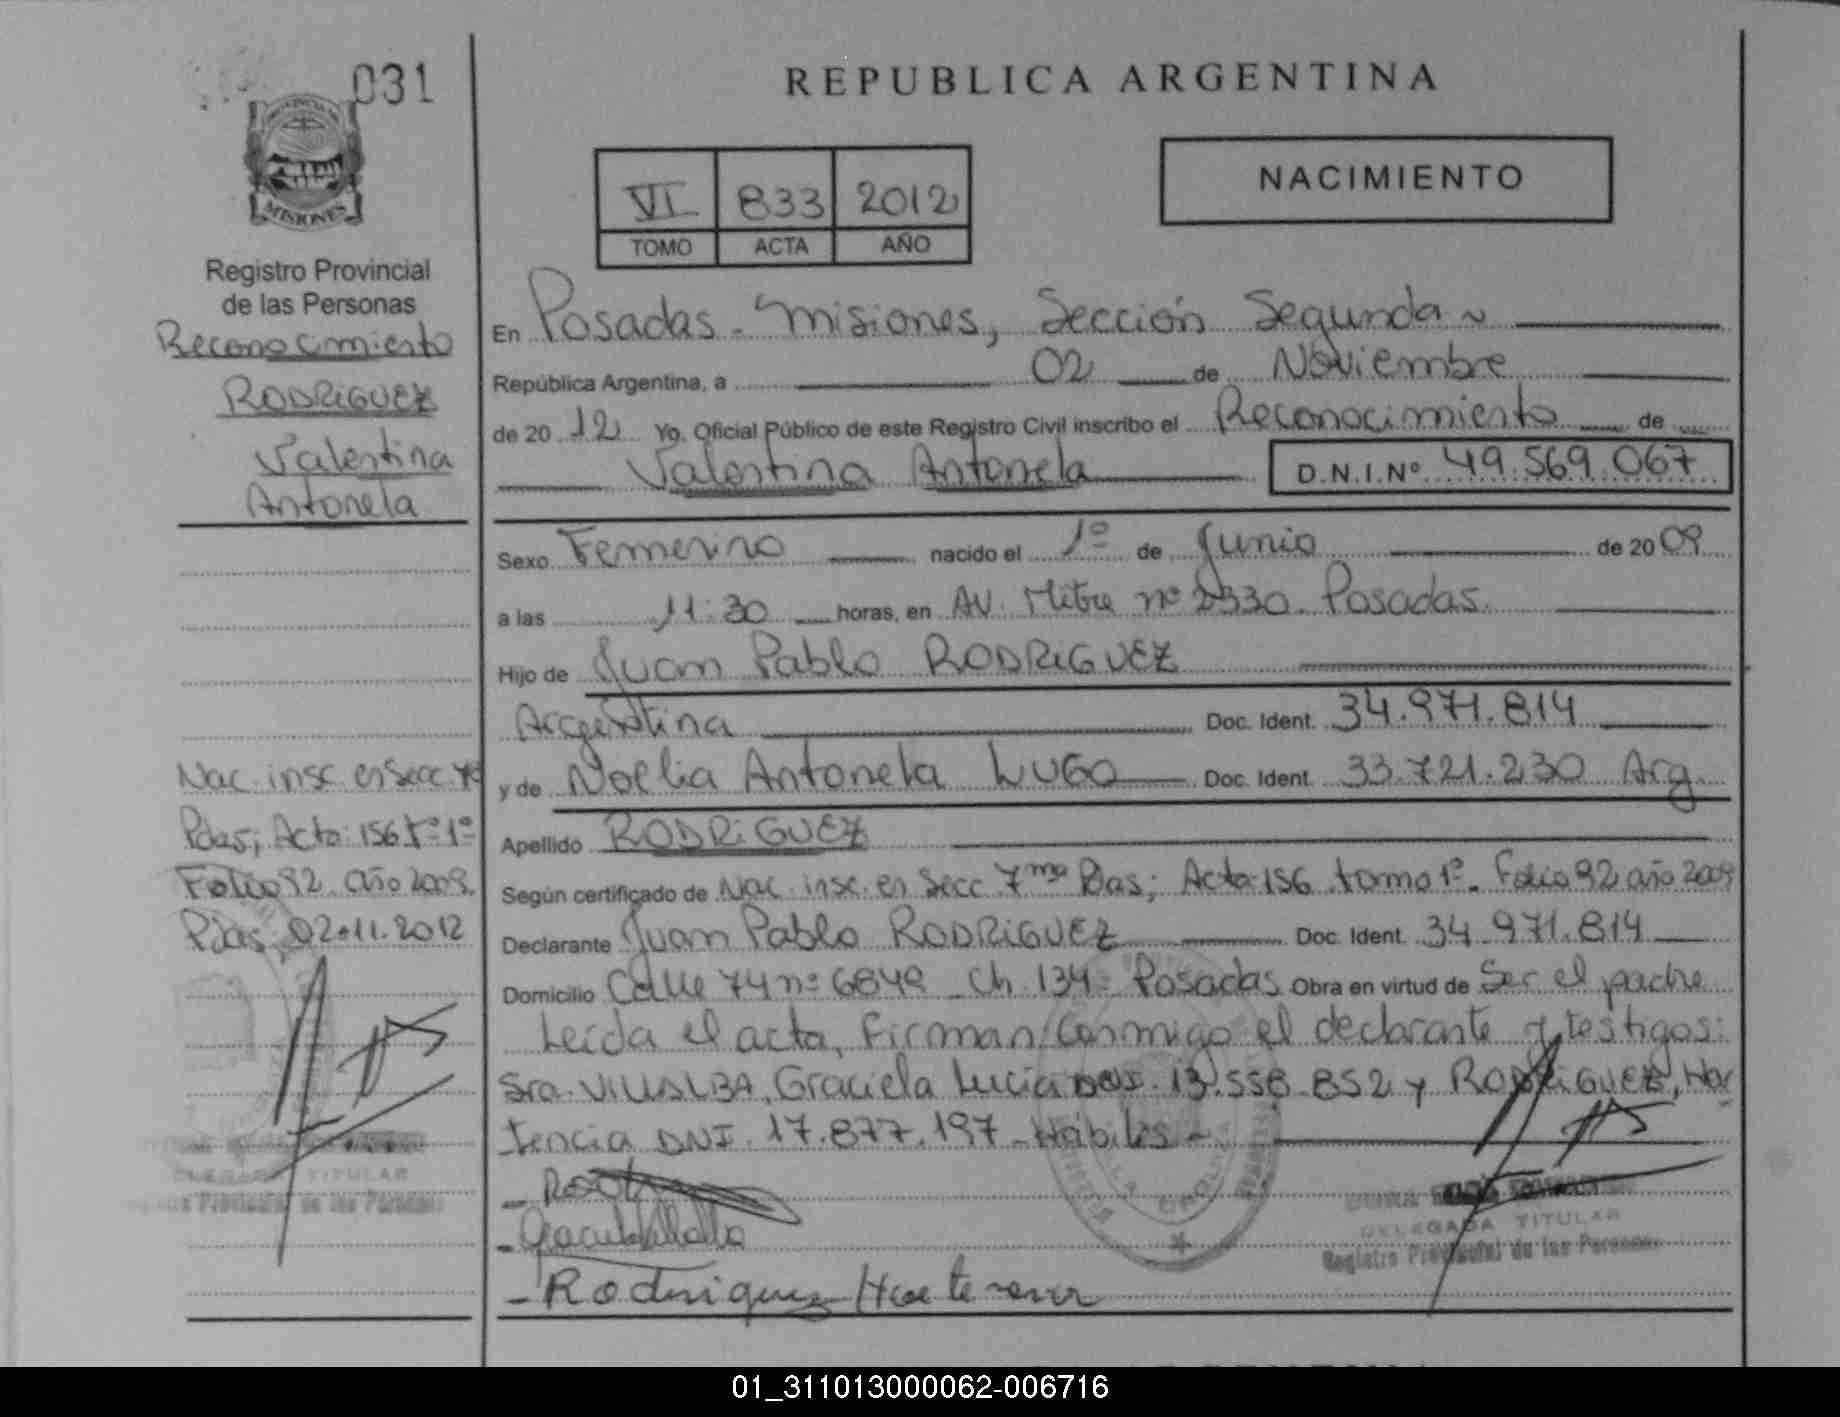 031
MISIONES
Registro Provincial
de las Personas
Reconocimiento
RODRIGUEZ
Valentina
Antonela
Nac. insc. en Secc 7ª
Pdas; Acta: 156 Tº 1º
Folio 92 año 2009.
Pdas, 02.11.2012
DELEGADA TITULAR
Registro Provincial de las Personas
REPUBLICA ARGENTINA
NACIMIENTO
VI 833 2012
TOMO ACTA AÑO
En Posadas - Misiones, Sección Segunda
República Argentina, a 02 de Noviembre
de 20 12 Yo, Oficial Público de este Registro Civil inscribo el Reconocimiento de
Valentina Antonela D.N.I.Nº 49.569.067
Sexo Femenino nacido el 1º de Junio de 20 09
a las 11:30 horas, en AV. Mitre nº 2330. Posadas.
Hijo de Juan Pablo RODRIGUEZ
Argentina Doc. Ident. 34.971.814
y de Noelia Antonela LUGO Doc. Ident. 33.721.230 Arg.
Apellido RODRIGUEZ
Según certificado de Nac. insc. en Secc 7ma Pdas; Acta: 156 tomo 1º. Folio 92 año 2009
Declarante Juan Pablo RODRIGUEZ Doc. Ident. 34.971.814
Domicilio Calle 74 nº 6849 Ch. 134 - Posadas Obra en virtud de Ser el padre
Leída el acta, Firman Conmigo el declarante y testigos:
Sra. VILLALBA, Graciela Lucia DNI. 13.558.852 y RODRIGUEZ, Hor
tencia DNI. 17.877.197 - Hábiles -
DELEGADA TITULAR
Registro Provincial de las Personas
- Rodriguez Hortencia
01_311013000062-006716